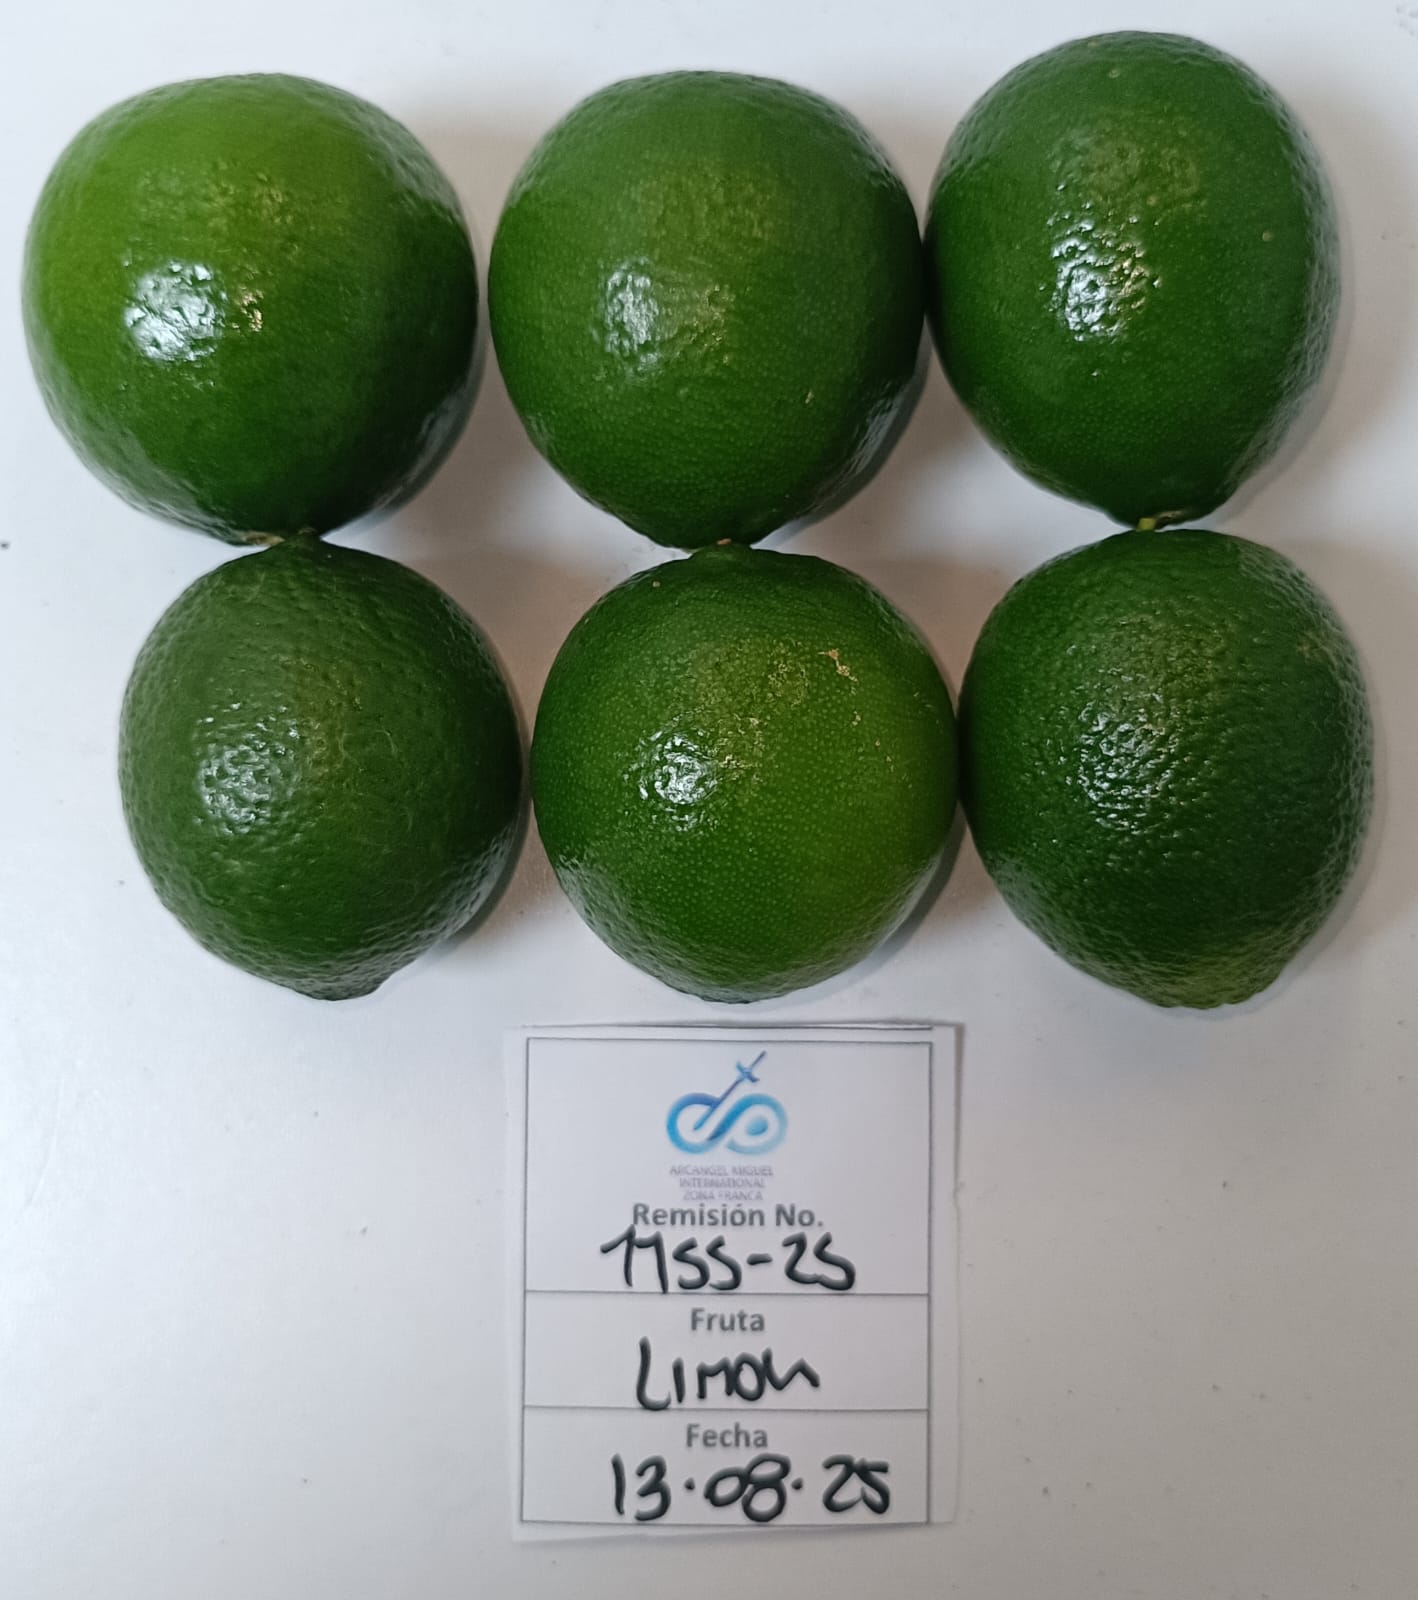 ARCANGEL MIGUEL
INTERNATIONAL
ZONA FRANCA
Remisión No.
1755-25
Fruta
LIMON
Fecha
13.08.25